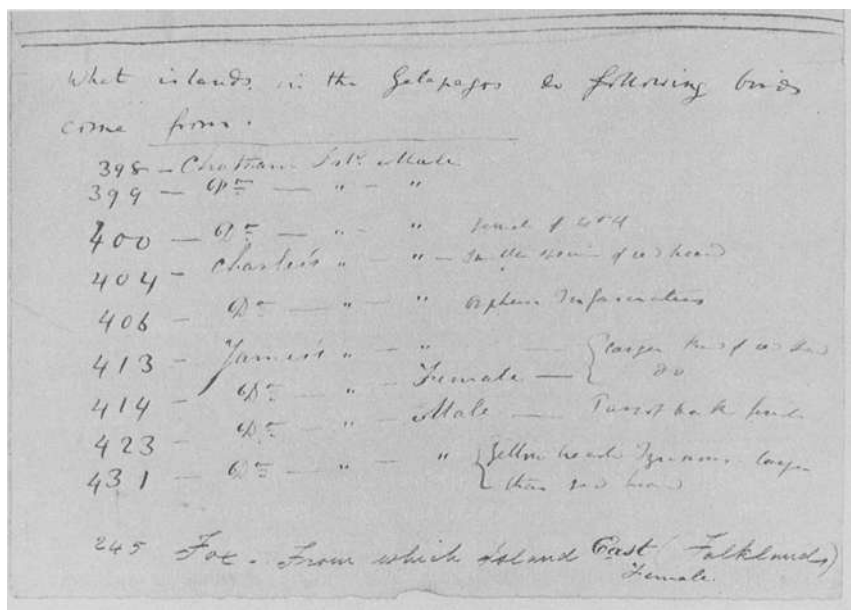 What islands in the Galapagos do following birds
come from.
398 - Chatham Isld. Male
399 - Do — " - "
400 - Do — " - " female of 404
404 - Charles's " - " - Smaller of red head
406 - Do — " - " Orpheus trifasciatus
413 - James's " - " — { larger kind of red head
414 - Do " Female — { Do
423 - Do " Male — Parrot beak finch
431 - Do — " - " { Yellow head Tyrannus larger
than red head
245 Fox. From which island East (Falklands)
Female.